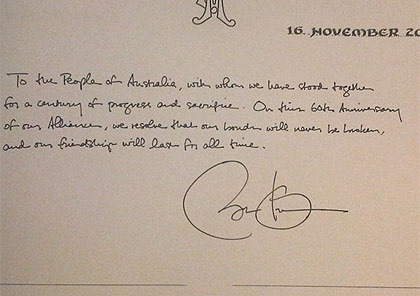 16. NOVEMBER 20
To the People of Australia, with whom we have stood together
for a century of progress and sacrifice. On this 60th Anniversary
of our Alliance, we resolve that our bonds will never be broken,
and our friendship will last for all time.